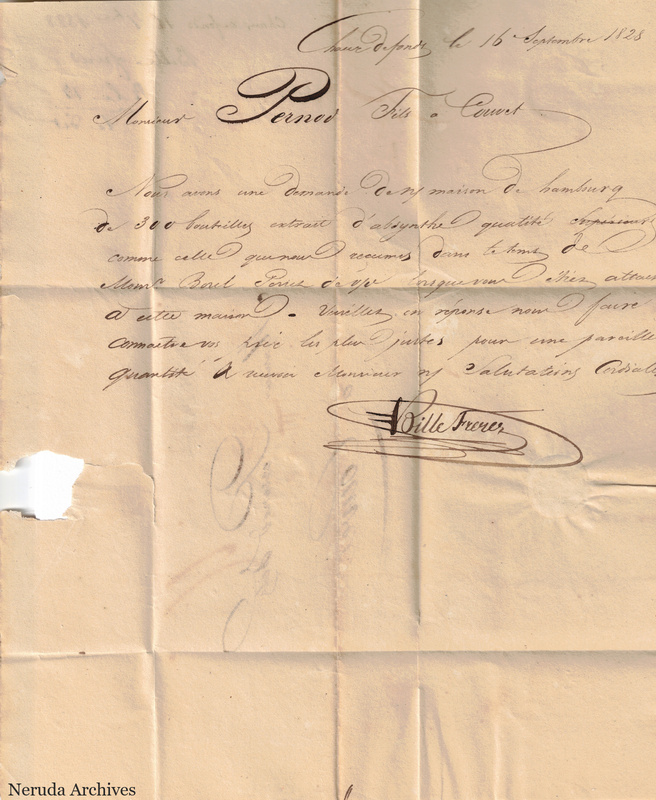 Chaux defonds le 16 Septembre 1828
Monsieur Pernod Fils a Couvet
Nous avons une demande de nj maison de hamburg
de 300 bouteilles extrait d'absynthe qualité
comme celle que nous recumes dans le tems de
Monsr Borel lorsque vous étiez
a cette maison. Veuillez en réponse nous faire
connaitre vos prix les plus justes pour une pareille
quantité & recevoir Monsieur nj Salutations Cordiales
Bille Freres
Neruda Archives